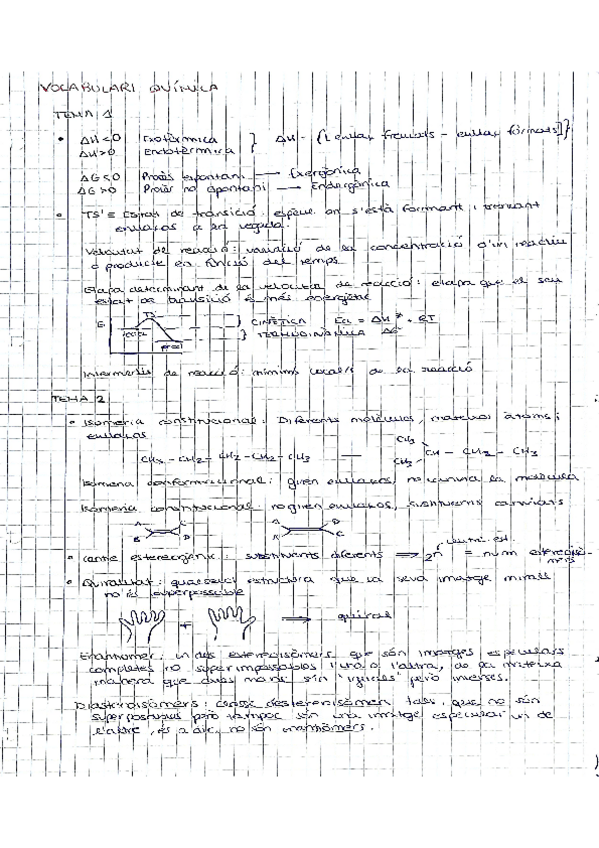 VOCABULARI QUÍMICA
TEMA 1
• ΔH<0 Exotèrmica } ΔH = - {[enllaç trencats - enllaç formats]}
ΔH>0 Endotèrmica
ΔG<0 Procés espontani → Exergònica
ΔG>0 Procés no espontani → Endergònica
• TS'= Estat de transició: espècie on s'està formant i trencant
enllaços a la vegada.
Velocitat de reacció: variació de la concentració d'un reactiu
o producte en funció del temps
Etapa determinant de la velocitat de reacció: etapa que el seu
estat de transició és més energètic
TS
E } CINÈTICA Ea = ΔH≠ + RT
react } TERMODINÀMICA ΔG
prod
Intermedis de reacció: mínims locals de la reacció
TEMA 2
• Isomeria constitucional: Diferents molècules, mateixos àtoms i
enllaços
CH3 - CH2 - CH2 - CH2 - CH3 — CH3 CH3 CH - CH2 - CH3
Isomeria conformacional: giren enllaços, no canvia la molècula
Isomeria constitucional: no giren enllaços, substituents canviats
A C B D A D B C
• centre estereogènic: substituents diferents ⟹ 2ⁿ = núm estereoisò-
mers
• Quiralitat: qualsevol estructura que la seva imatge mirall
no és superposable
+ → quiral
Enantiòmer: un dels estereoisòmers que són imatges especulars
completes no superimposables l'una a l'altra, de la mateixa
manera que dues mans són "iguals" però inverses.
Diastereoisòmers: classe d'estereoisòmers tals que no són
superposables però tampoc són una imatge especular un de
l'altre, és a dir, no són enantiòmers.